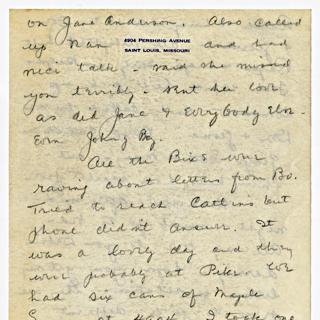 on Jane Anderson. Also called
4904 PERSHING AVENUE
SAINT LOUIS, MISSOURI
up Nan and had
nice talk - said she missed
you terribly. Sent her love
as did Jane & Everybody Else
Even Johny
All the Bixs were
raving about letters from Bo.
Tried to reach Catlins but
phone didn't answer. It
was a lovely day and they
were probably at We
had six cans of Maple
at I took one